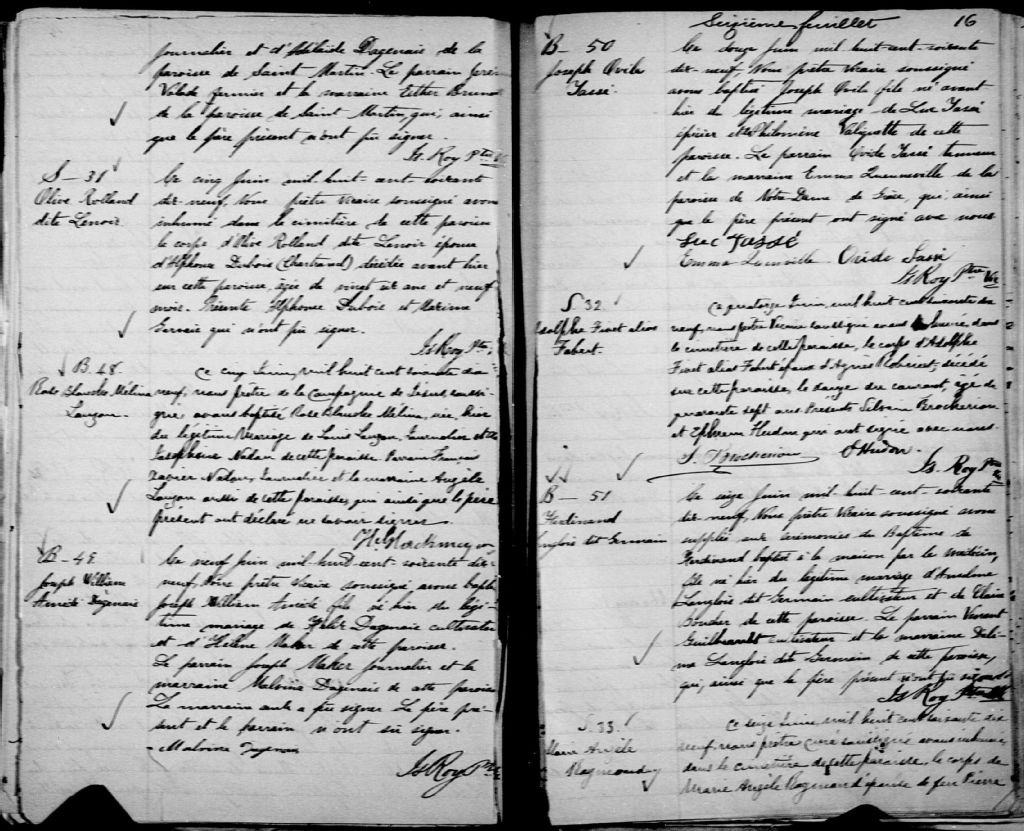 journalier et d'Adelaide Dagenais de la
paroisse de Saint Martin. Le parrain
fermier et la marraine Esther
de la paroisse de Saint Martin, qui, ainsi
que le père présent n'ont pu signer.
Js Roy Ptre
S - 31
Olive Rolland
dite Lenoir
Ce cinq Juin mil huit cent soixante
dix-neuf, Nous prêtre vicaire soussigné avons
inhumé dans le cimitière de cette paroisse
le corps d'Olive Rolland dite Lenoir épouse
d'Alphonse Dubois (Chartrand) décédée avant hier
sur cette paroisse, âgée de vingt et ans et neuf
mois. Présents Alphonse Dubois et
Gervais qui n'ont pu signer.
Js Roy Ptre
B. 48.
Rose Blanche Melina
Lauzon
Ce cinq Juin, mil huit cent soixante dix
neuf, nous prêtre de la Compagnie de Jésus, soussi-
gné, avons baptisé Rose Blanche Melina, née, hier
du légitime Mariage de Louis Lauzon, Journalier et de
Josephine Nadon de cette paroisse. Parrain François
Xavier Nadon, Journalier et la marraine Angèle
Lauzon aussi de cette paroisse, qui ainsi que le père
présent ont déclaré ne savoir signer.
B - 49
Joseph William
Dagenais
Ce neuf Juin mil huit cent soixante dix-
neuf, Nous prêtre vicaire soussigné avons baptisé
Joseph William fils né hier du légi-
time mariage de Dagenais cultivateur
et d'Hélène Maher de cette paroisse.
Le parrain Joseph Maher journalier et la
marraine Malvina Dagenais de cette paroisse
La marraine seule a pu signer. Le père pré-
sent et le parrain n'ont su signer.
Js Roy Ptre
Seizième feuillet 16
B - 50
Joseph Ovide
Tassé
Ce douze Juin mil huit-cent-soixante
dix-neuf, Nous prêtre vicaire soussigné
avons baptisé Joseph Ovide fils né avant
hier du légitime mariage de Luc Tassé
épicier et de Philomène Valiquette de cette
paroisse. Le parrain Ovide Tassé tanneur
et la marraine Emma Quenneville de la
paroisse de Notre Dame de Grâce, qui, ainsi
que le père présent ont signé avec nous
Luc Tassé
Emma Ovide Tassé
Js Roy Ptre Vic
S. 32
Adolphe alias
Fabert.
Ce quatorze Juin, mil huit cent soixante dix
neuf, nous prêtre Vicaire soussigné avons inhumé, dans
le cimetière de cette paroisse, le corps d'Adolphe
alias Fabert époux d'Agnès décédé
sur cette paroisse, le douze du courant, âgé de
quarante sept ans. Présents Silvain Brocherion
et Ephrem Hudon qui ont signé avec nous.
S. Brocherion E Hudon
Js. Roy Ptre
B - 51
Ferdinand
Langlois dit Germain
Ce seize Juin mil huit-cent-soixante
dix-neuf, Nous prêtre vicaire soussigné avons
suppléé aux cérémonies du Baptême de
Ferdinand baptisé à la maison par le médecin,
fils né hier du légitime mariage d'Anselme
Langlois dit Germain cultivateur et de
Boucher de cette paroisse. Le parrain Vincent
Guilbeault cultivateur et la marraine Deli-
ma Langlois dit Germain de cette paroisse,
qui, ainsi que le père présent n'ont pu signer
Js Roy Ptre
S. 33.
Marie Angèle
Raymond
Ce seize Juin, mil huit cent soixante dix
neuf, nous prêtre curé soussigné avons inhumé,
dans le cimetière de cette paroisse, le corps de
Marie Angèle Raymond épouse de feu Pierre